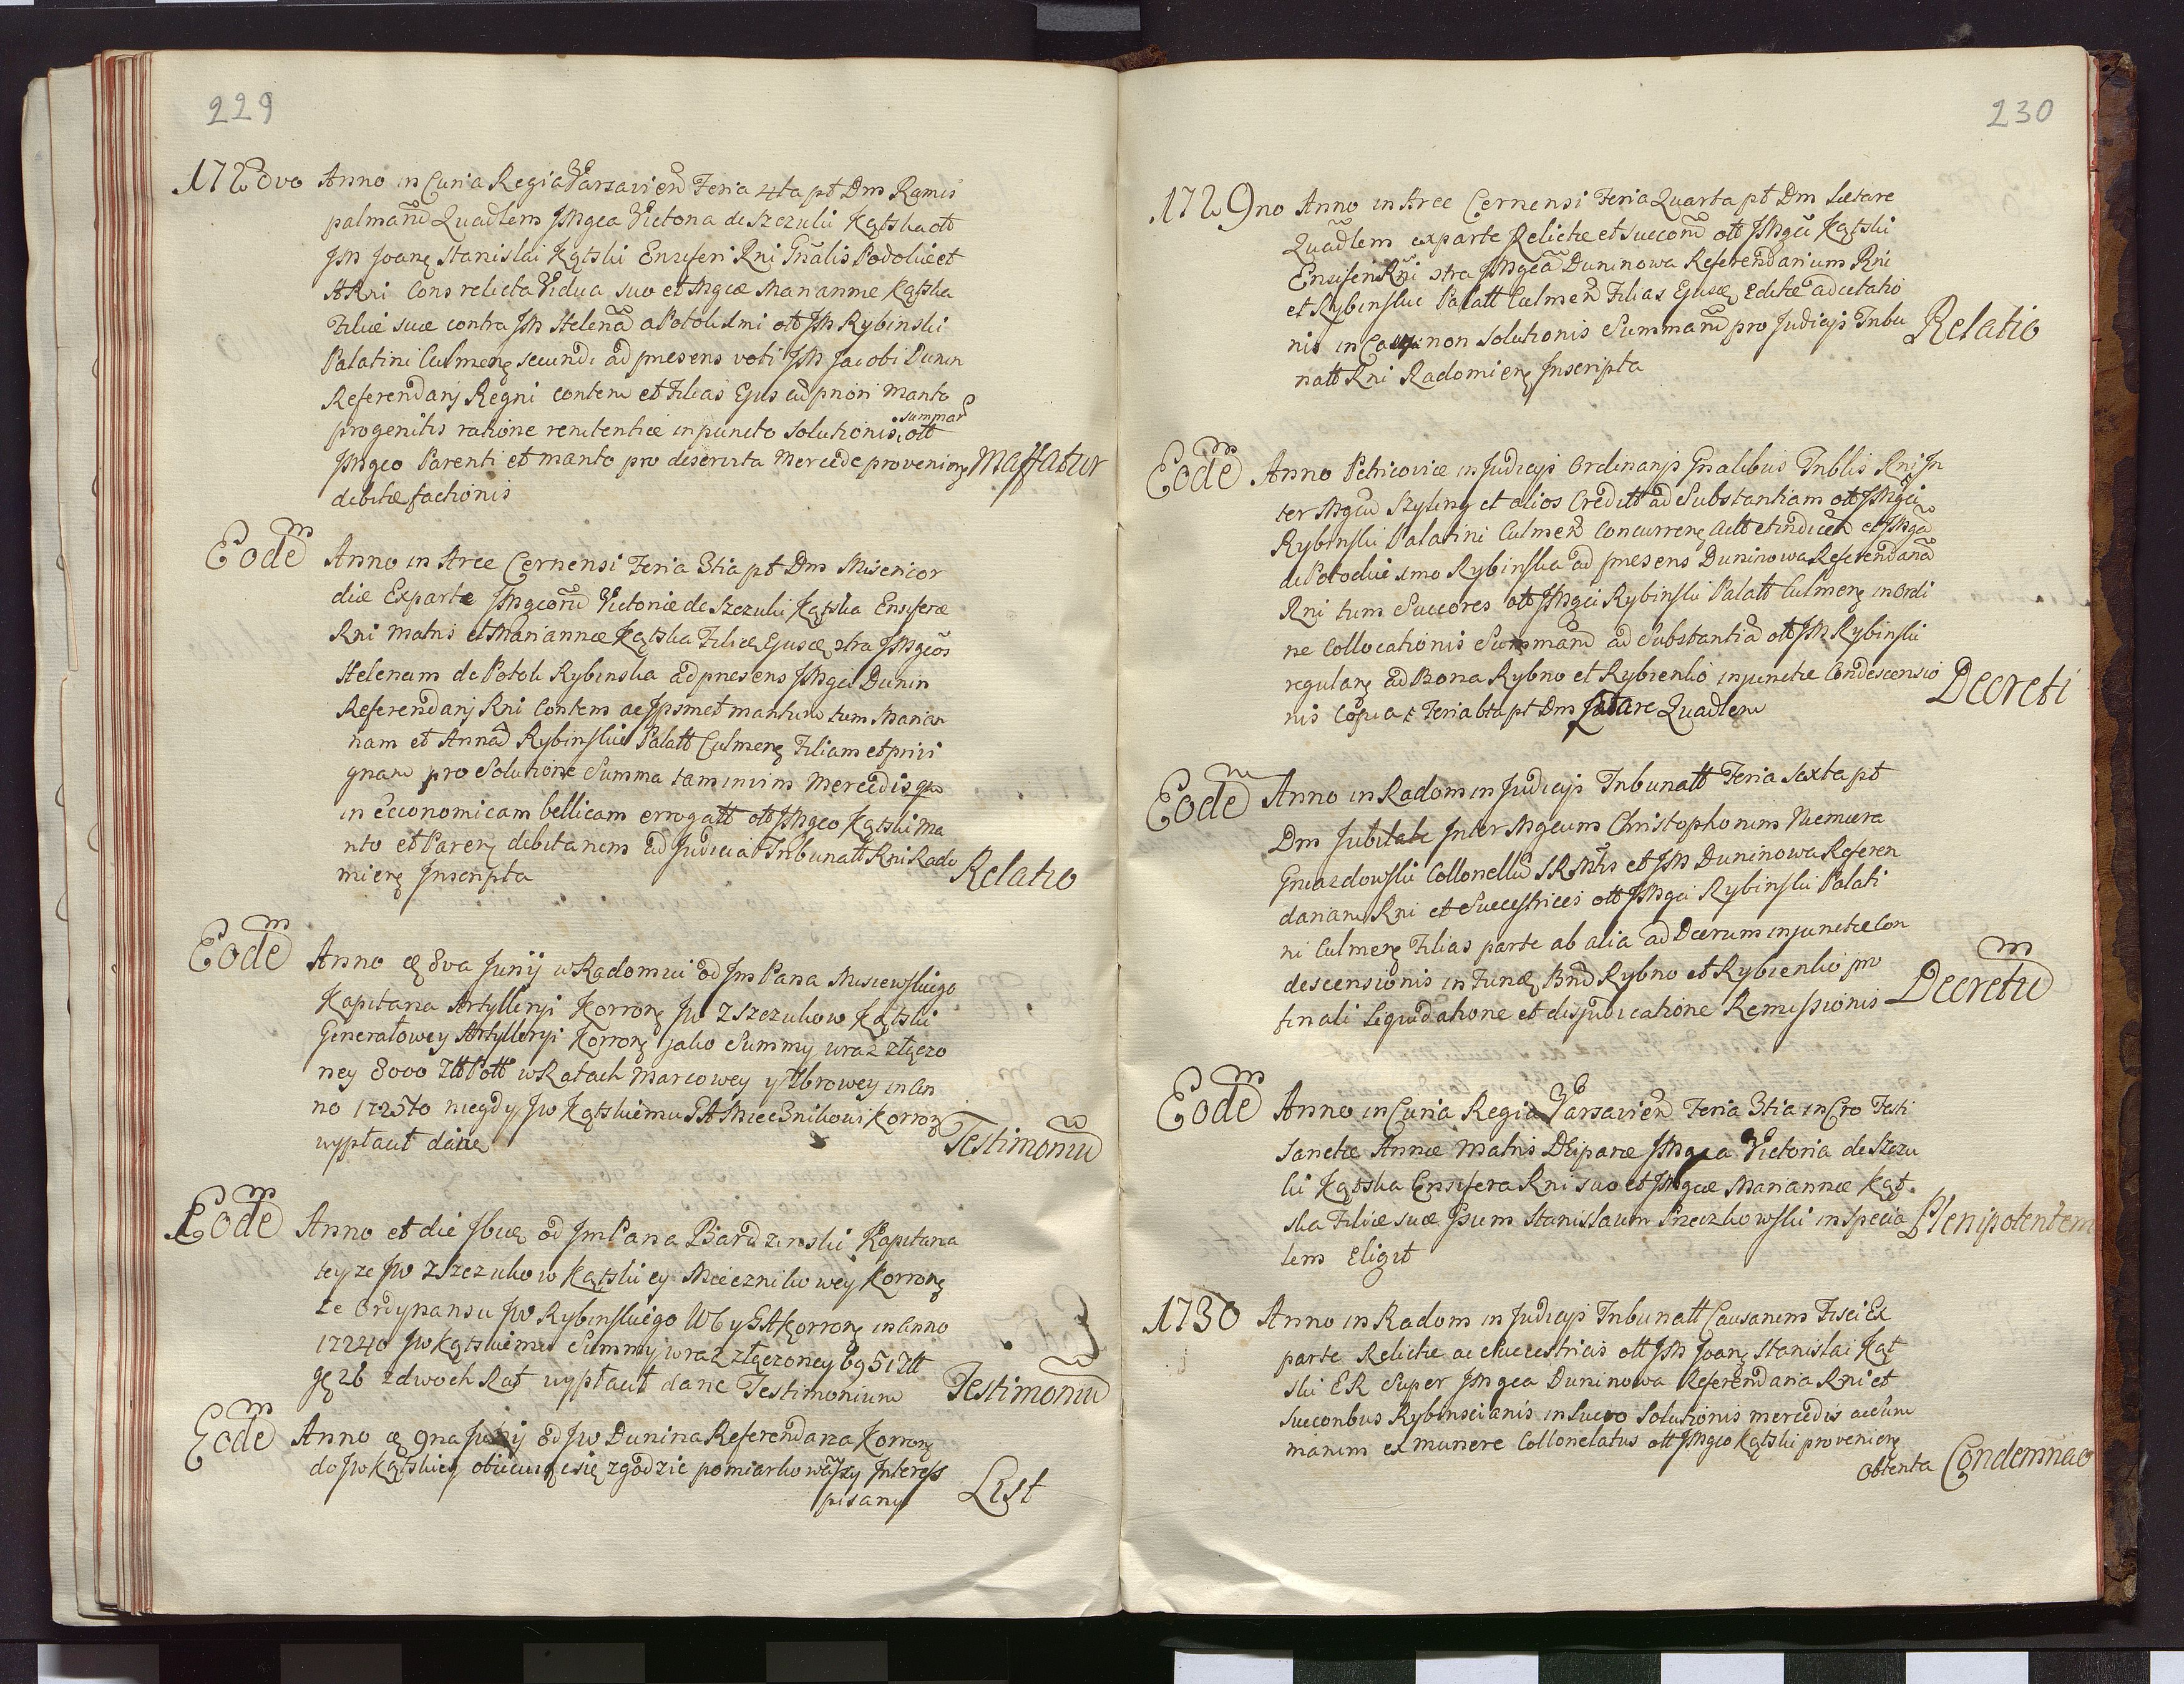 229
1728vo Anno in Curia Regia Varsavien Feria 4ta pt Dm Ramis
palmarũ Quadlem JMgca Victoria de Szczuki Kątska ott
JM Joanę Stanislai Kątski Ensiferi Rni Gnalis Podoliæ et
ARni Cons relicta Vidua suo et Mgcæ Mariannæ Kątska
Filiæ suæ contra JM Helenã a Potok 1mi ott JM Rybinski
Palatini Culmenę secundi ad præsens voti JM Jacobi Dunin
Referendarj Regni contem et Filias Ejus ad priori Marito
progenitis ratione renitentiæ in puncto solutionis summarũ ott
JMgco Parenti et marito pro deservita Mercede provenienę Maffatur
debitæ factionis
Eodẽ Anno in Arce Cernensi Feria 3tia pt Dm Misericor
diæ Exparte JMgcorũ Victoriæ de Szczuki Kątska Ensiferæ
Rni Matris et Mariannæ Kątska Filiæ Ejusę ctra JMgcos
Helenam de Potok Rybinska ad præsens JMgci Dunin
Referendarj Rni Contem ac Jpsmet maritum tum Marian
nam et Annã Rybinskie Palatt Culmenę Filiam et privi
gnam pro Solutione Summa tam mim Mercedis qm
in œconomicam bellicam errogatt ott JMgco Kątski Ma
rito et Parenę debitarum ad Judicia Tribunatt Rni Rado
mienę Inscripta Relatio
Eodẽ Anno æ 8va Junij w Radomiu od Jm Pana Musiewskiego
Kapitana Artylleryi Korronę JW z Szczukow Kątski
Generałowey Artylleryi Korronę jako Summy wraz złączo
ney 8000 złt Pott w Ratach Marcowey y 7browey in An
no 1725to niegdy JW Kątskiemu GA Miecznikowi Korronę
wypłacił dane Testimoniũ
Eodẽ Anno et die Jbuę od Jm Pana Bardzinski Kapitana
teyze JW z Szczukow Kątskiey Miecznikowey Korronę
ze Ordynansu JW Rybinskiego WC y GA Korronę in Anno
17240 JW Kątskiemu Summy wraz złączoney 6951 Złt
gę 26 z dwoch Rat wypłacił dane Testimonium Testimoniũ
Eodẽ Anno æ 9na Junij od JW Dunina Referendarza Korronę
do JW Kątskiey obiecując się zgodzic pomiarkowawszy Interess
pisany List
230
1729no Anno in Arce Cernensi Feria Quarta pt Dm Lætare
Quadlem exparte Relictæ et succorũ ott JMgci Kątski
Ensiferi Rni ctra JMgcã Duninowa Referendarium Rni
et Rybinskie Palatt Culmeñ Filias Ejusę Edictæ ad citatio
nis in Causa non solutionis Summarũ pro Judicijs Tribu Relatio
natt Rni Radomienę Inscripta
Eodẽ Anno Petricoviæ in Judicijs Ordinarijs Gnalibus Triblis Rni In
ter Mgcũ Szyling et alios Creditt ad Substantiam ott JMgci
Rybinski Palatini Culmeñ Concurrenę Actt et indiceñ et JMgcã
de Potockie 1mo Rybinska ad præsens Duninowa Referendariã
Rni tum Succores ott JMgci Rybinski Palatt Culmenę in Ordi
ne Collocationis Summarũ ad Substantiã ott JM Rybinski
regularę ad Bona Rybno et Rybienko injunctæ Condescensio Decreti
nis Copia e Feria 6ta pt Dm Lætare Quadlem
Eodẽ Anno in Radom in Judicijs Tribunatt Feria Saxta pt
Dm Jubilate Inter Mgcum Christophorum Niemiera
Gniazdowski Collonellũ SRMtis et JM Duninowa Referen
dariam Rni et Succestrices ott JMgci Rybinski Palati
ni Culmenę Filias parte ab alia ad Decrum injunctæ Con
descensionis in Fundę Bnũ Rybno et Rybienko pro
finali Liquidatione et disjudicatione Remissionis Decretũ
Eodẽ Anno in Curia Regia Varsavieñ Feria 3tia in Cro Festi
Sanctæ Annæ Matris Deiparæ JMgca Victoria de Szczu
ki Kątska Ensifera Rni suo et JMgcæ Mariannæ Kąt
ska Filiæ suæ Gsum Stanislaum Przeczkowski in Specia Plenipotentem
lem Eligit
1730 Anno in Radom in Judicijs Tribunatt Causarum Fisci Ex
parte Relictæ ac Succestricis ott JM Joanę Stanislai Kąt
ski ER Super JMgca Duninowa Referendaria Rni et
Succoribus Rybinscianis in Lucro Solutionis mercedis accum
marum ex munere Collonelatus ott JMgco Kątski provenienę
obtenta Condemnao